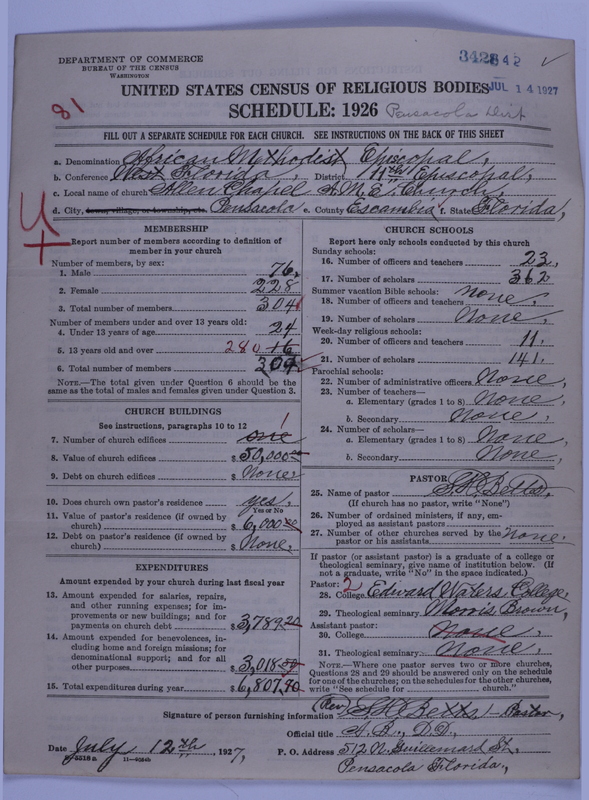 DEPARTMENT OF COMMERCE
BUREAU OF THE CENSUS
WASHINGTON
JUL 14 1927
81
UNITED STATES CENSUS OF RELIGIOUS BODIES
SCHEDULE: 1926 Pensacola Dist
FILL OUT A SEPARATE SCHEDULE FOR EACH CHURCH. SEE INSTRUCTIONS ON THE BACK OF THIS SHEET
a. Denomination African Methodist Episcopal,
b. Conference West Florida, District 11th Episcopal,
c. Local name of church Allen Chapel A. M. E. Church,
d. City, town, village, or township, etc. Pensacola e. County Escambia f. State Florida,
MEMBERSHIP
Report number of members according to definition of member in your church
Number of members, by sex:
1. Male 76,
2. Female 228
3. Total number of members 304
Number of members under and over 13 years old:
4. Under 13 years of age 24
5. 13 years old and over 280 16
6. Total number of members 304
NOTE.—The total given under Question 6 should be the same as the total of males and females given under Question 3.
CHURCH BUILDINGS
See instructions, paragraphs 10 to 12
1
7. Number of church edifices one
8. Value of church edifices $ 50,000
9. Debt on church edifices $ None.
10. Does church own pastor's residence yes.
Yes or No
11. Value of pastor's residence (if owned by church) $ 6,000
12. Debt on pastor's residence (if owned by church) $ None.
EXPENDITURES
Amount expended by your church during last fiscal year
13. Amount expended for salaries, repairs, and other running expenses; for improvements or new buildings; and for payments on church debt $ 3,789.20
14. Amount expended for benevolences, including home and foreign missions; for denominational support; and for all other purposes $ 3,018.
15. Total expenditures during year $ 6,807.
CHURCH SCHOOLS
Report here only schools conducted by this church
Sunday schools:
16. Number of officers and teachers 23,
17. Number of scholars 362
Summer vacation Bible schools:
18. Number of officers and teachers none,
19. Number of scholars None,
Week-day religious schools:
20. Number of officers and teachers 11.
21. Number of scholars 141.
Parochial schools:
22. Number of administrative officers None,
23. Number of teachers—
a. Elementary (grades 1 to 8) None,
b. Secondary None,
24. Number of scholars—
a. Elementary (grades 1 to 8) None,
b. Secondary None,
PASTOR
25. Name of pastor Betts,
(If church has no pastor, write "None")
26. Number of ordained ministers, if any, employed as assistant pastors
27. Number of other churches served by the pastor or his assistants None.
If pastor (or assistant pastor) is a graduate of a college or theological seminary, give name of institution below. (If not a graduate, write "No" in the space indicated.)
Pastor: 2
28. College Edward Waters College,
29. Theological seminary Morris Brown,
Assistant pastor:
30. College None,
31. Theological seminary None,
NOTE.—Where one pastor serves two or more churches, Questions 28 and 29 should be answered only on the schedule for one of the churches; on the schedules for the other churches, write "See schedule for church."
(Rev)
Signature of person furnishing information Betts Pastor,
Official title A. B., D.D.,
Date July 12th, 1927, P. O. Address 512 N. Guillemard St,
Pensacola Florida,